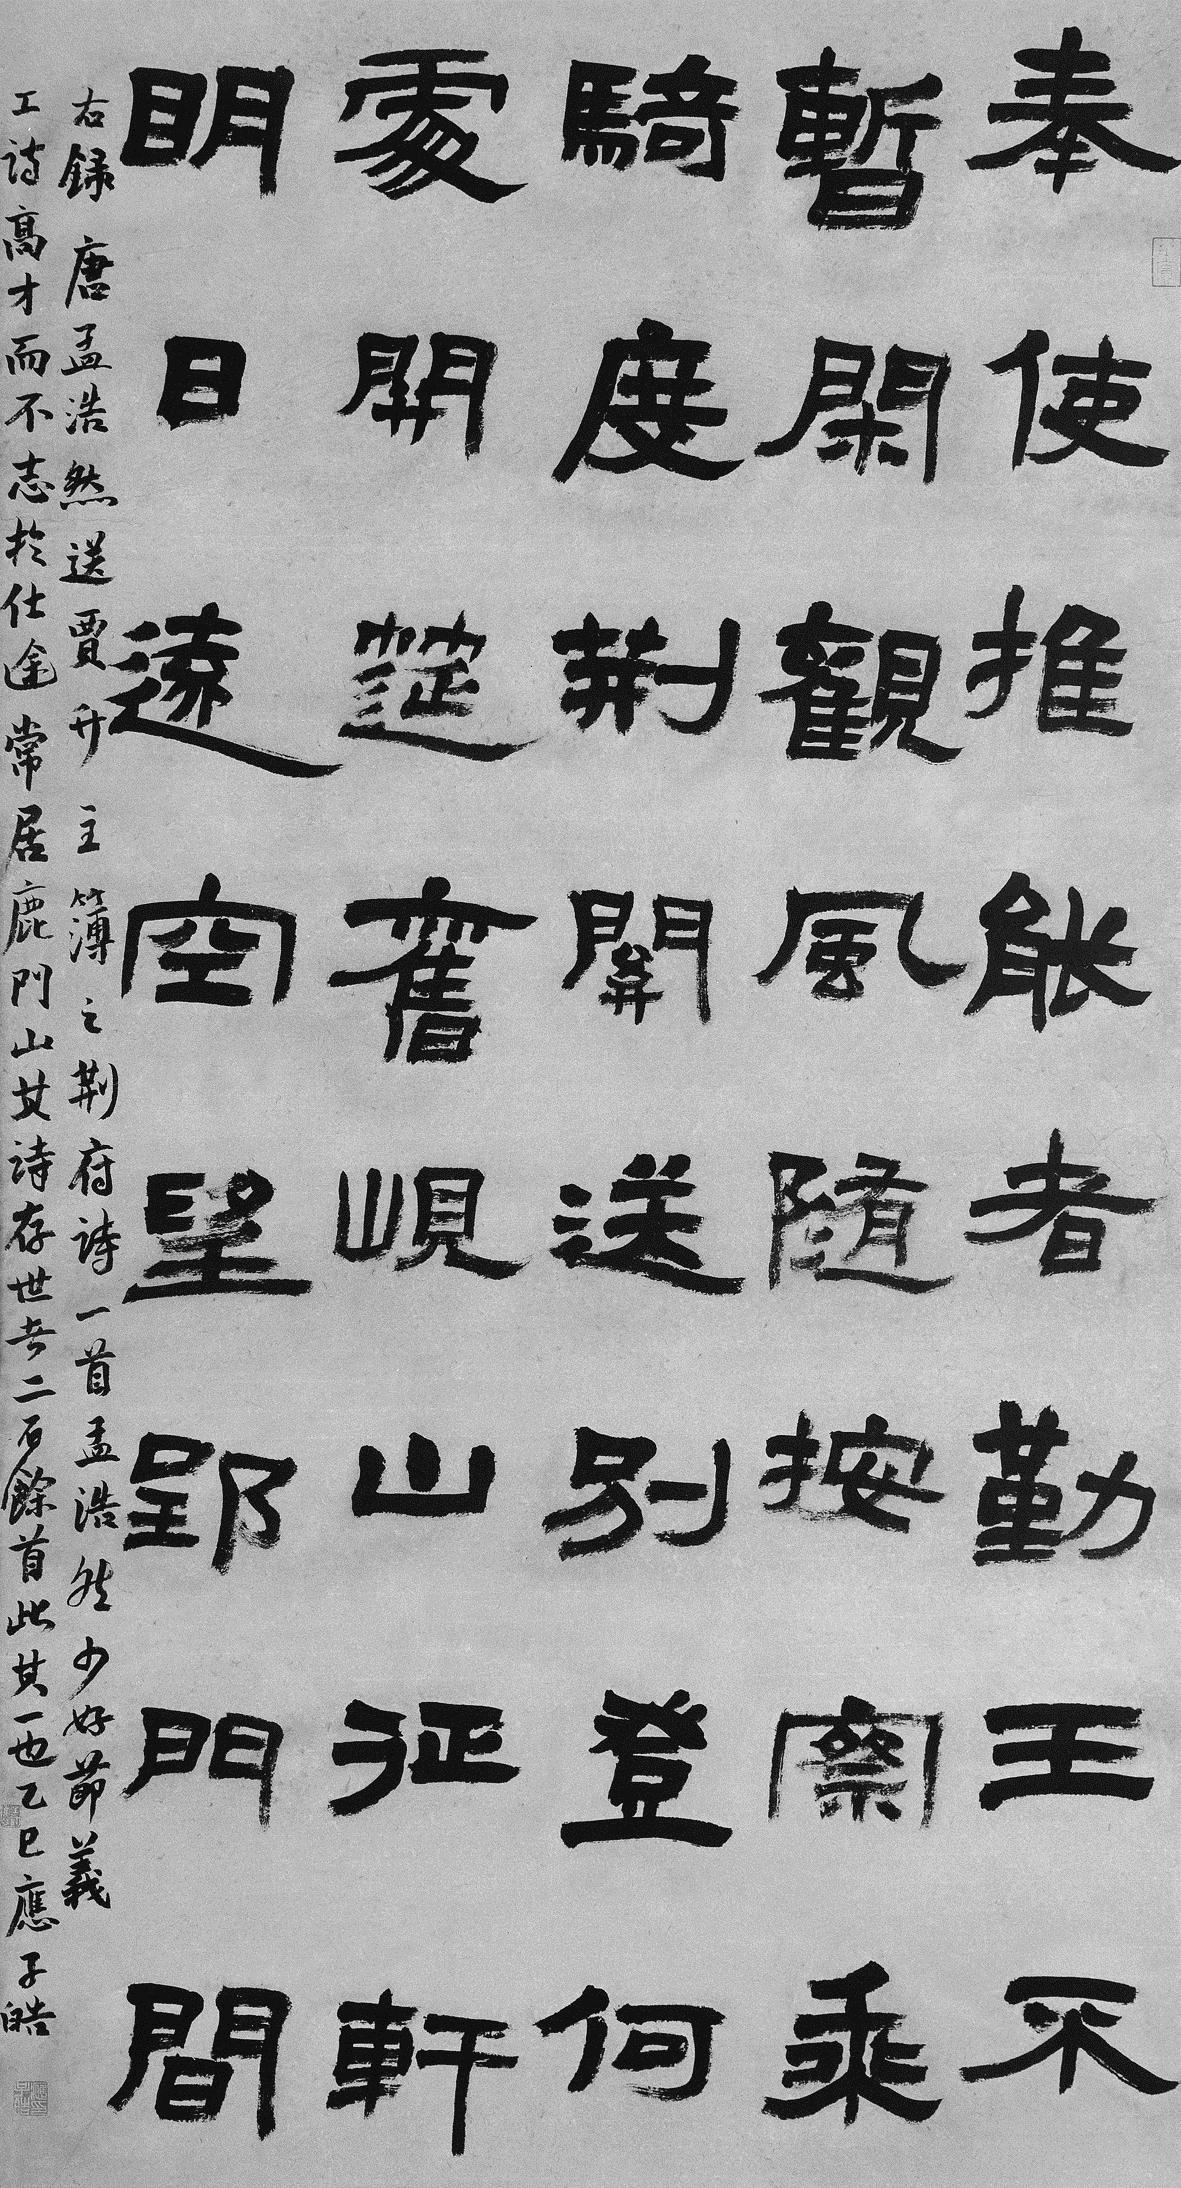 奉使推能者勤王不
暫閑觀風隨按察乘
騎度荆關送別登何
處開筵舊峴山征軒
明日遠空望郢門間
右録唐孟浩然送賈升主簿之荆府詩一首孟浩然少好節義
工詩高才而不志於仕途常居鹿門山其詩存世者二百餘首此其一也乙巳應子皓